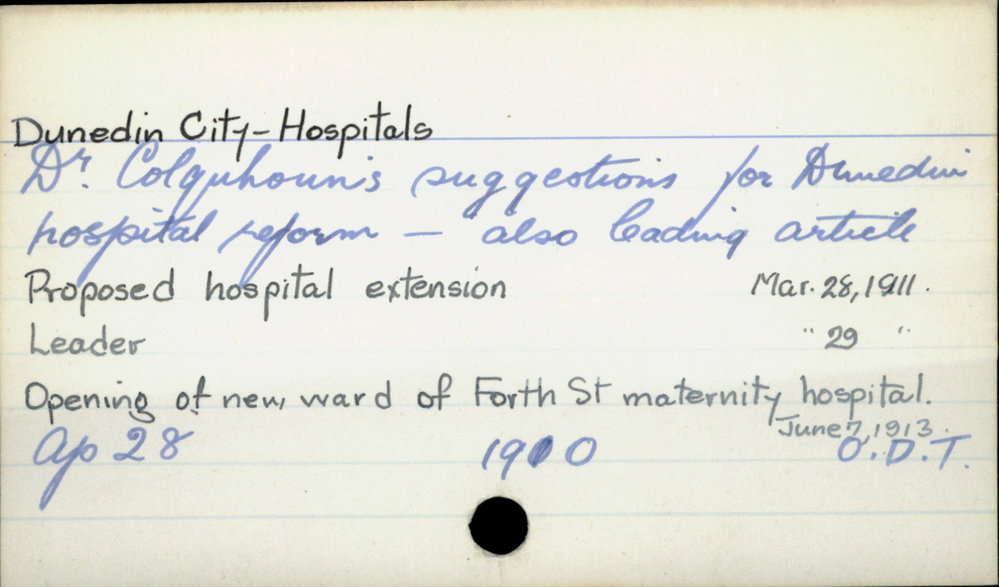 Dunedin City - Hospitals
Dr. Colquhoun's suggestions for Dunedin
hospital reform — also leading article
Proposed hospital extension Mar. 28, 1911.
Leader " 29 "
Opening of new ward of Forth St maternity hospital.
June 7, 1913.
Ap 28 1910 O.D.T.